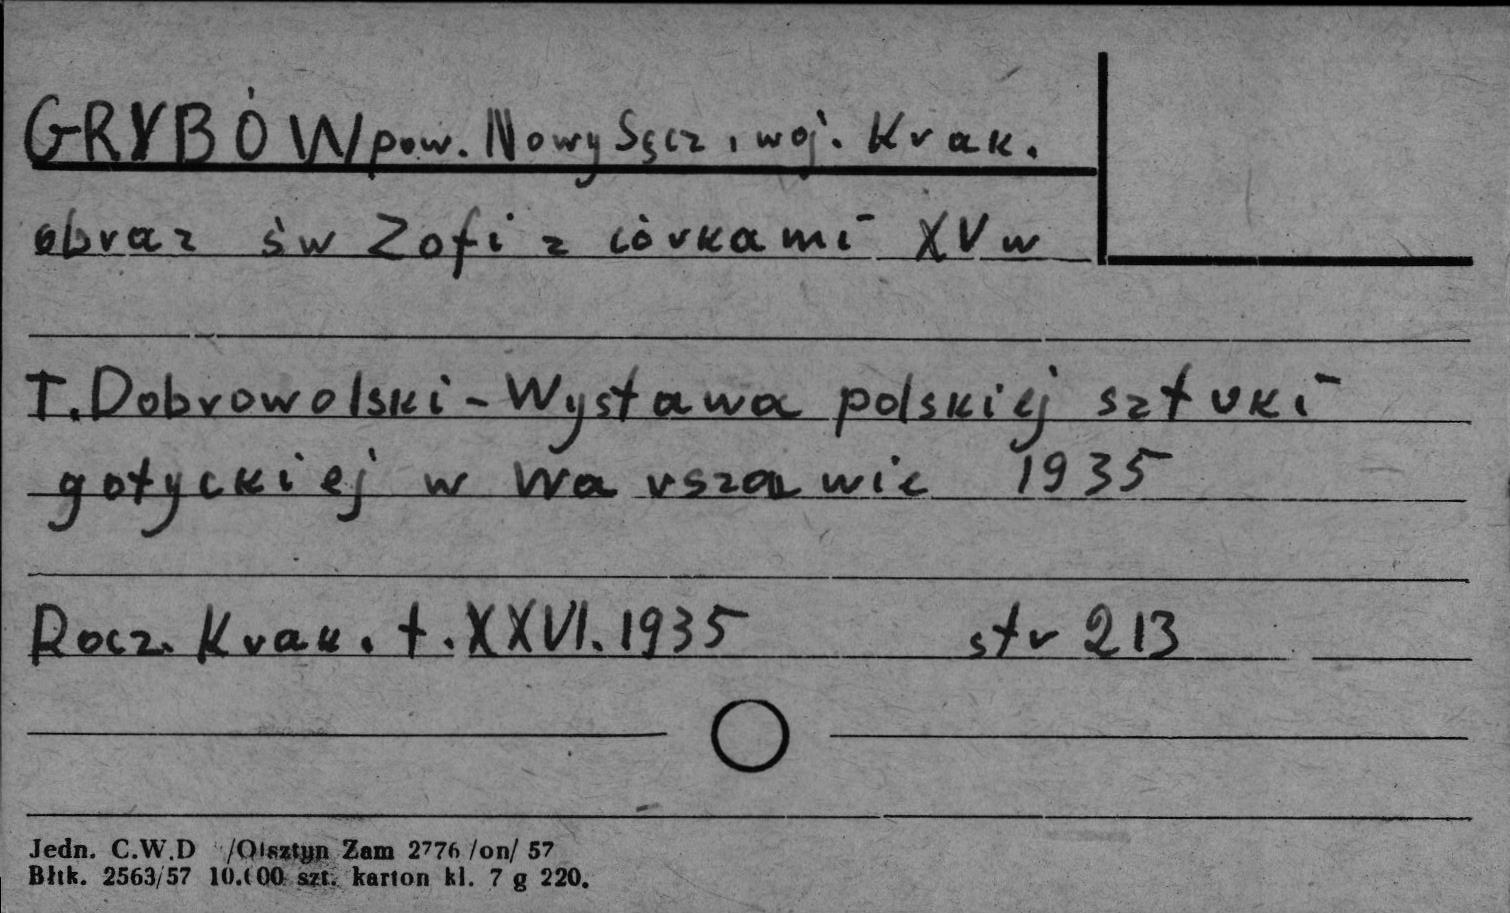 GRYBÓW pow. Nowy Sącz, woj. Krak.
obraz św Zofi z córkami XV w
T. Dobrowolski - Wystawa polskiej sztuki
gotyckiej w Warszawie 1935
Rocz. Krak. t. XXVI. 1935 str 213
Jedn. C.W.D /Olsztyn Zam 2776 /on/ 57
Błtk. 2563/57 10.000 szt. karton kl. 7 g 220.